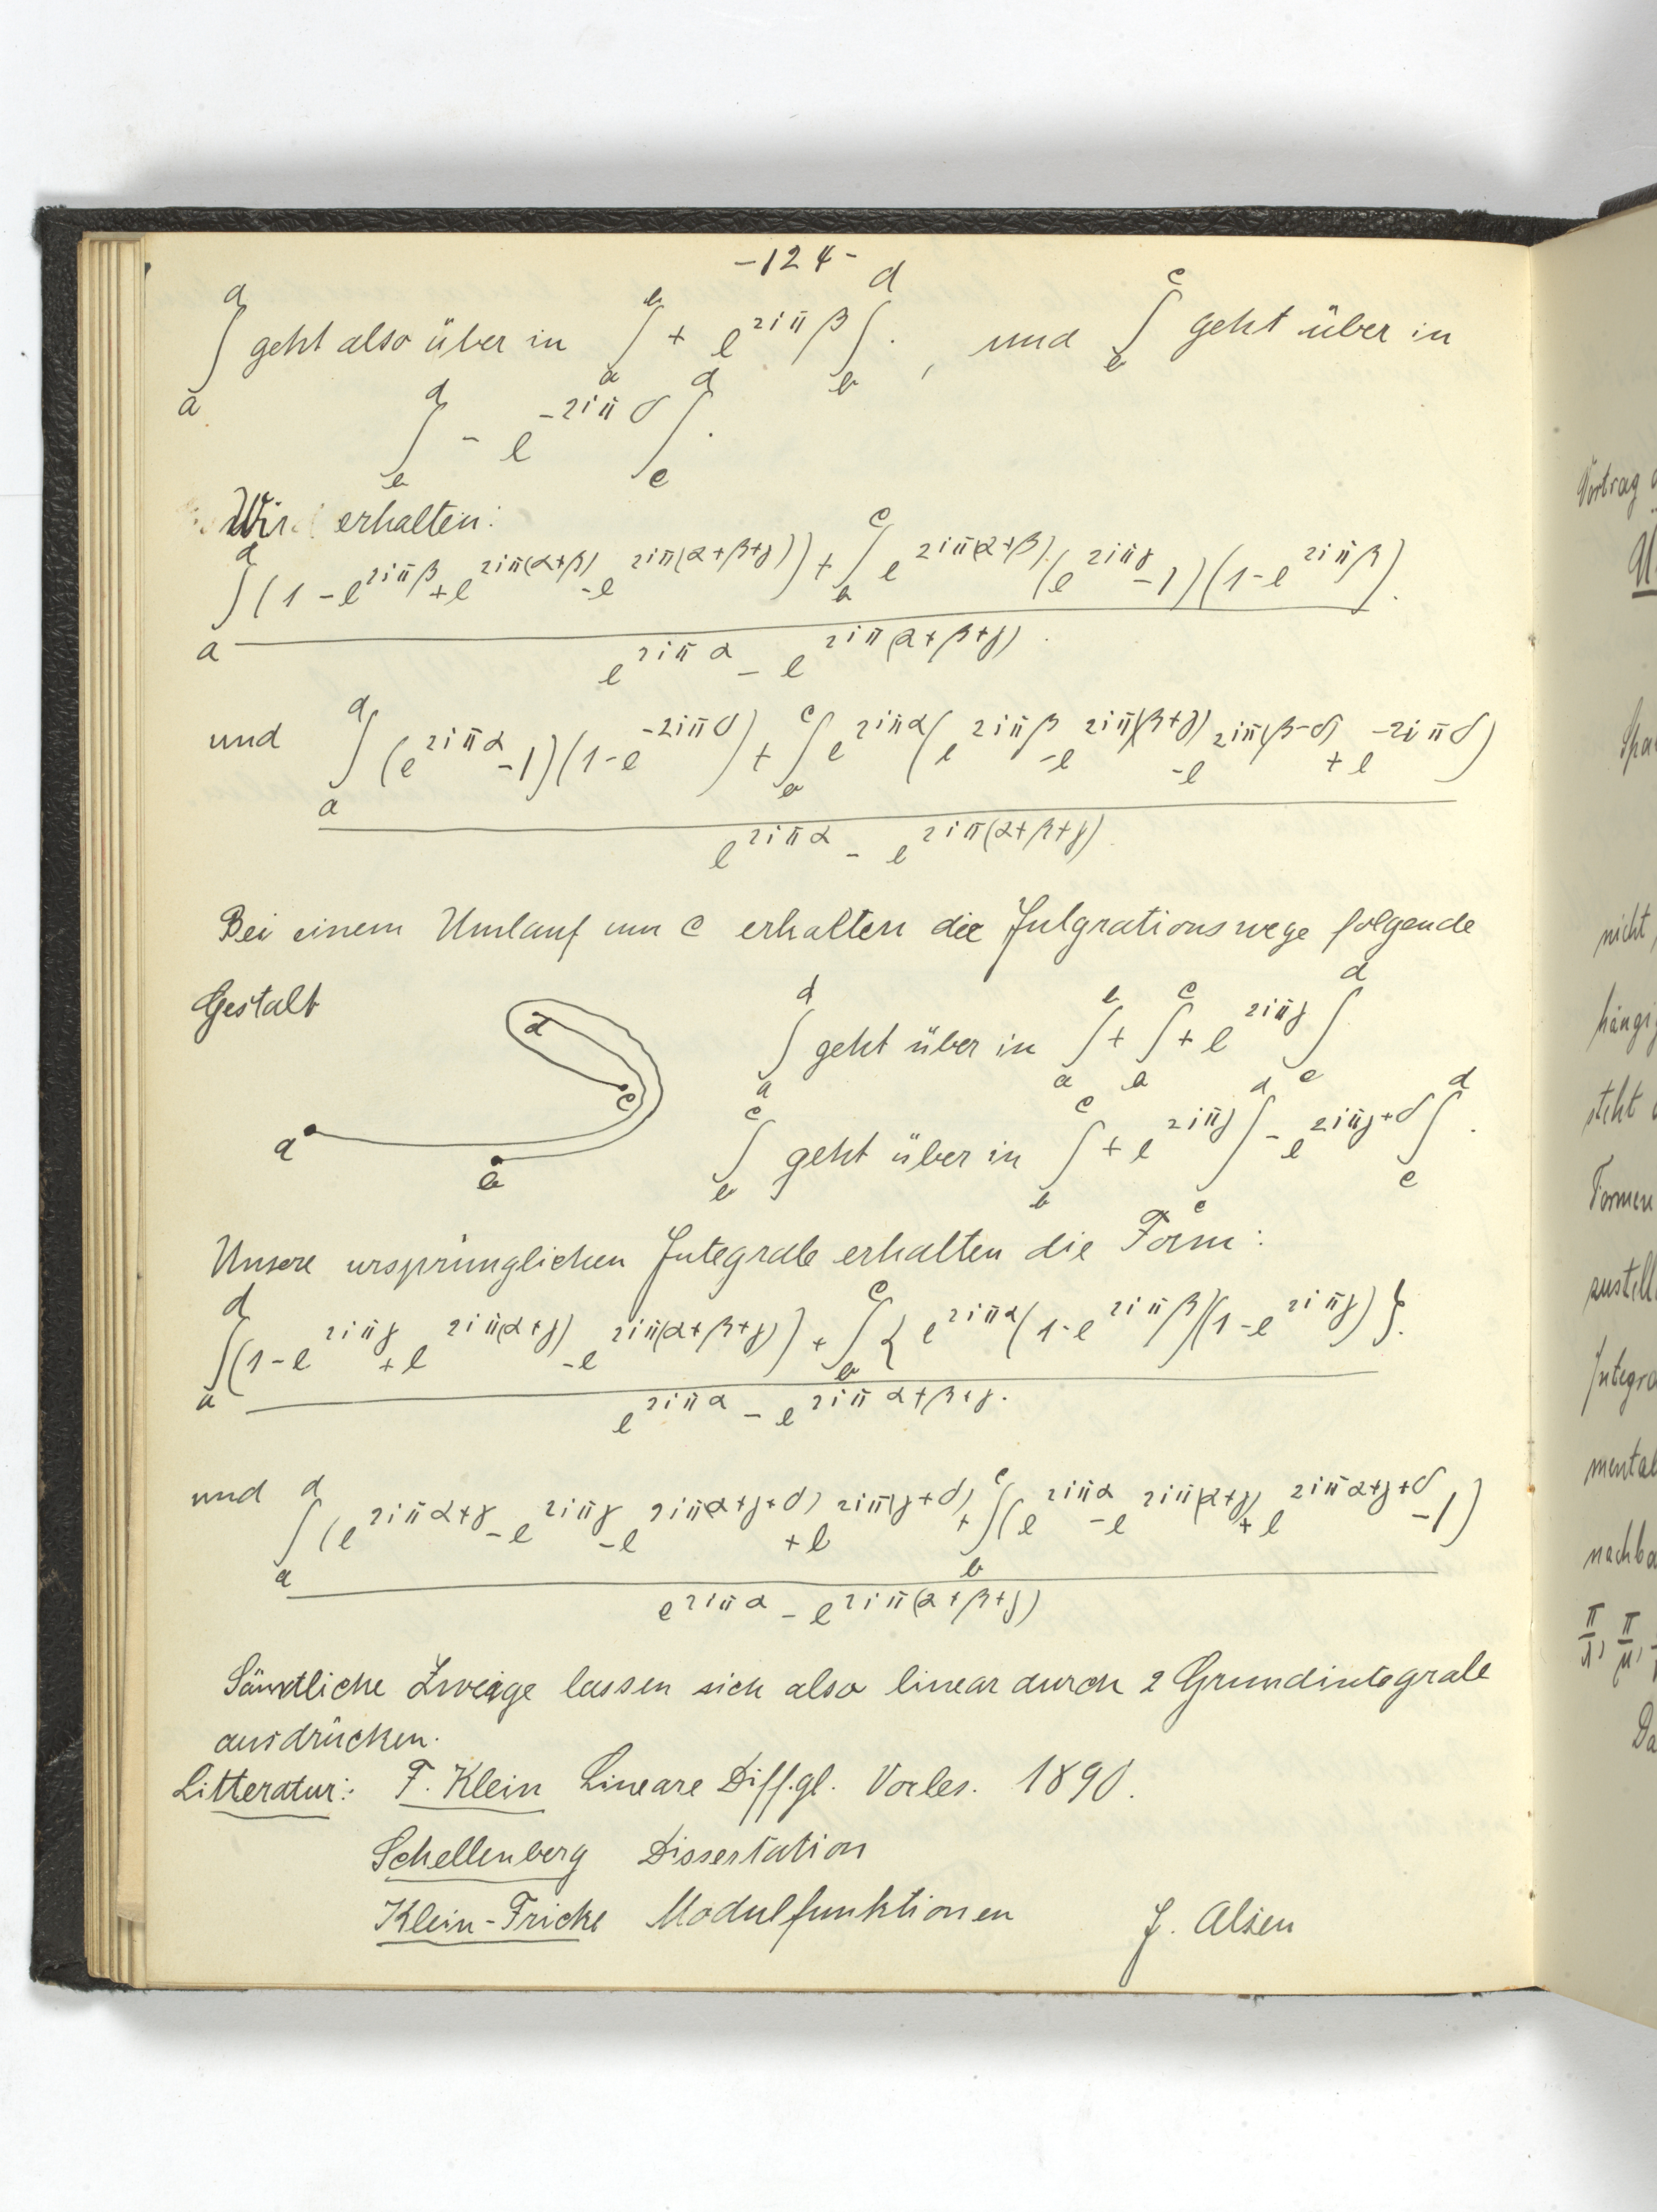 -124-
∫_a^d geht also über in ∫_a^b + e^{2iπβ} ∫_b^d . , und ∫_b^c geht über in
∫_b^d - e^{-2iπδ} ∫_c^d .
Wir erhalten:
∫_a^d (1 - e^{2iπβ} + e^{2iπ(α+β)} - e^{2iπ(α+β+γ)}) + ∫_b^c e^{2iπ(α+β)} (e^{2iπγ} - 1)(1 - e^{2iπβ}).
e^{2iπα} - e^{2iπ(α+β+γ)}.
und ∫_a^d (e^{2iπα} - 1)(1 - e^{-2iπδ}) + ∫_b^c e^{2iπα} (e^{2iπβ} - e^{2iπ(β+γ)} - e^{2iπ(β-δ)} + e^{-2iπδ})
e^{2iπα} - e^{2iπ(α+β+γ)}.
Bei einem Umlauf um c erhalten die Jutgrationswege folgende
Gestalt
d
c
a
b
∫_a^d geht über in ∫_a^b + ∫_b^c + e^{2iπγ} ∫_c^d
∫_b^c geht über in ∫_b^c + e^{2iπγ} ∫_c^d - e^{2iπγ+δ} ∫_c^d .
Unsere ursprünglichen Integrale erhalten die Form:
∫_a^d (1 - e^{2iπγ} + e^{2iπ(α+γ)} - e^{2iπ(α+β+γ)}) + ∫_b^c { e^{2iπα} (1 - e^{2iπβ})(1 - e^{2iπγ}) }.
e^{2iπα} - e^{2iπ α+β+γ}.
und ∫_a^d (e^{2iπ α+γ} - e^{2iπγ} - e^{2iπ(α+γ+δ)} + e^{2iπ(γ+δ)} + ∫_b^c (e^{2iπα} - e^{2iπ(α+γ)} + e^{2iπ α+γ+δ} - 1)
e^{2iπα} - e^{2iπ(α+β+γ)}
Sämtliche Zweige lassen sich also linear durch 2 Grundintegrale
ausdrücken.
Litteratur: F. Klein Lineare Diff.gl. Vorles. 1890.
Schellenberg Dissertation
Klein-Fricke Modulfunktionen
J. Alsen
Vortrag
nicht,
steht
Formen
zustell
Integra
mental
nachba
π/λ, π/μ,
Da